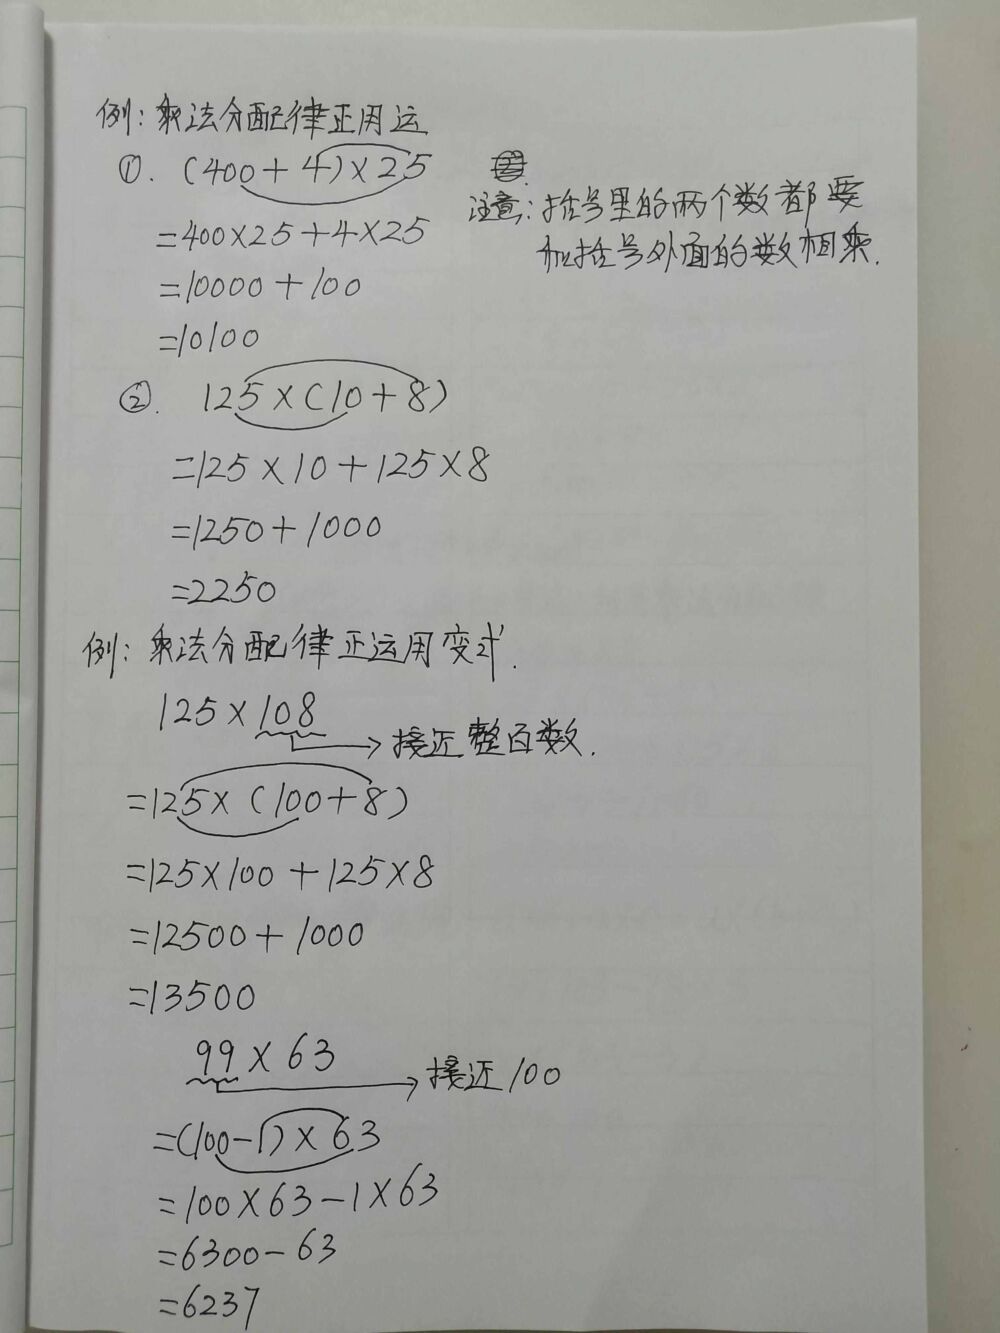 例：乘法分配律正用运
①. (400+4)×25
注意：括号里的两个数都要
和括号外面的数相乘.
=400×25+4×25
=10000+100
=10100
②. 125×(10+8)
=125×10+125×8
=1250+1000
=2250
例：乘法分配律正运用变式.
125×108
接近整百数.
=125×(100+8)
=125×100+125×8
=12500+1000
=13500
99×63
接近100
=(100-1)×63
=100×63-1×63
=6300-63
=6237